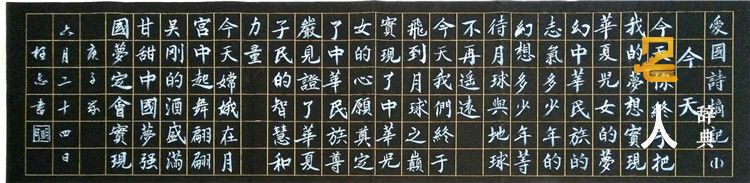 愛國詩摘記(1)
今天
今天你終于把
我的夢想實現
華夏兒女的夢
幻中華民族的
志氣多少年的
幻想多少年等
待月球與地球
不再遥遠
今天我們終于
飛到月球之巔
實現了中華兒
女的心願奠定
了中華民族尊
嚴見證了華夏
子民的智慧和
力量
今天嫦娥在月
宮中起舞翩翩
吴刚的酒盛滿
甘甜中國夢强
國夢定會實現
庚子
六月二十四日
書
名人辞典